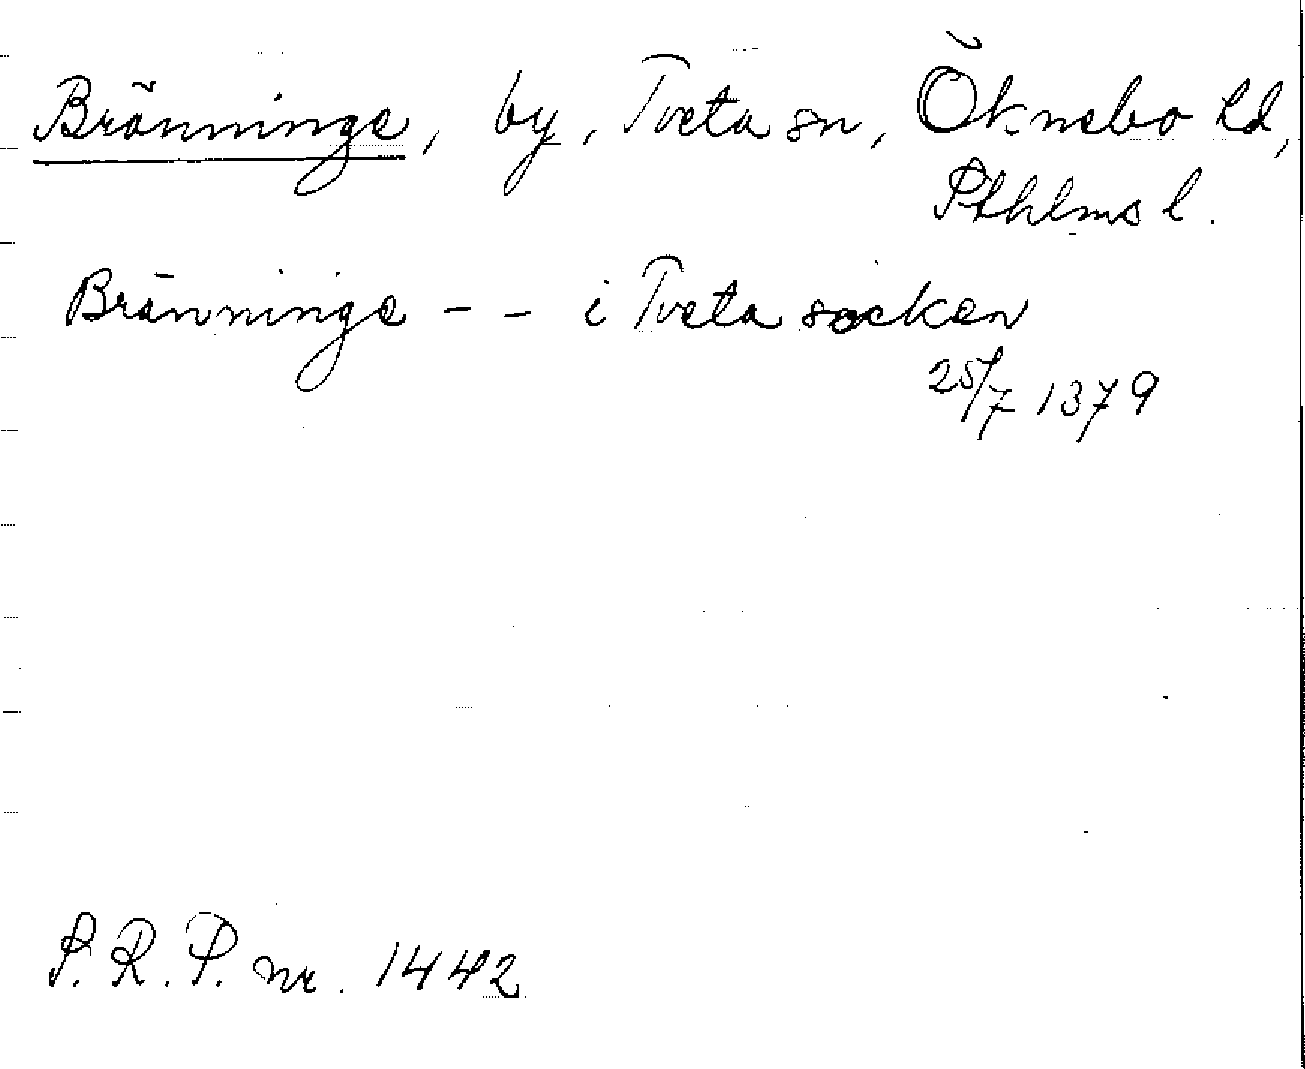 Bränninge, by, Tveta sn, Öknebo hd,
Sthlms l.
Bränninge - - i Tveta socken
25/7 1379
S. R. P. nr. 1442